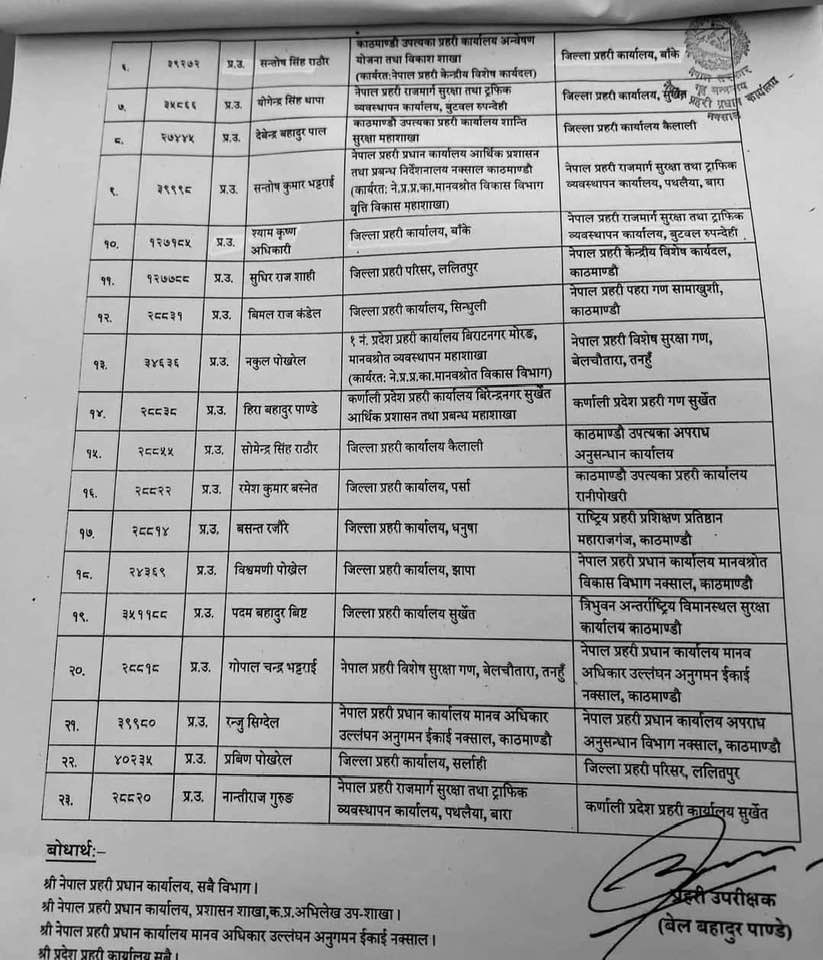 ६. ३९२७२ प्र.उ. सन्तोष सिंह राठौर काठमाण्डौ उपत्यका प्रहरी कार्यालय अन्वेषण जिल्ला प्रहरी कार्यालय, बाँके
योजना तथा विकाश शाखा
(कार्यरत:नेपाल प्रहरी केन्द्रीय विशेष कार्यदल)
नेपाल सरकार
गृह मन्त्रालय
प्रहरी प्रधान कार्यालय
नक्साल
७. ३५८६६ प्र.उ. योगेन्द्र सिंह थापा नेपाल प्रहरी राजमार्ग सुरक्षा तथा ट्राफिक जिल्ला प्रहरी कार्यालय, सुर्खेत
व्यवस्थापन कार्यालय, बुटवल रुपन्देही
८. २७४४५ प्र.उ. देबेन्द्र बहादुर पाल काठमाण्डौ उपत्यका प्रहरी कार्यालय शान्ति जिल्ला प्रहरी कार्यालय कैलाली
सुरक्षा महाशाखा
९. ३९९९८ प्र.उ. सन्तोष कुमार भट्टराई नेपाल प्रहरी प्रधान कार्यालय आर्थिक प्रशासन नेपाल प्रहरी राजमार्ग सुरक्षा तथा ट्राफिक
तथा प्रबन्ध निर्देशनालय नक्साल काठमाण्डौ व्यवस्थापन कार्यालय, पथलैया, बारा
(कार्यरत: ने.प्र.प्र.का.मानवश्रोत विकास विभाग
वृत्ति विकास महाशाखा)
१०. १२७१८५ प्र.उ. श्याम कृष्ण जिल्ला प्रहरी कार्यालय, बाँके नेपाल प्रहरी राजमार्ग सुरक्षा तथा ट्राफिक
अधिकारी व्यवस्थापन कार्यालय, बुटवल रुपन्देही
११. १२७७८८ प्र.उ. सुधिर राज शाही जिल्ला प्रहरी परिसर, ललितपुर नेपाल प्रहरी केन्द्रीय विशेष कार्यदल,
काठमाण्डौ
१२. २८८३१ प्र.उ. बिमल राज कंडेल जिल्ला प्रहरी कार्यालय, सिन्धुली नेपाल प्रहरी पहरा गण सामाखुशी,
काठमाण्डौ
१३. ३४६३६ प्र.उ. नकुल पोखरेल १ नं. प्रदेश प्रहरी कार्यालय बिराटनगर मोरङ, नेपाल प्रहरी विशेष सुरक्षा गण,
मानवश्रोत व्यवस्थापन महाशाखा बेलचौतारा, तनहुँ
(कार्यरत: ने.प्र.प्र.का.मानवश्रोत विकास विभाग)
१४. २८८३८ प्र.उ. हिरा बहादुर पाण्डे कर्णाली प्रदेश प्रहरी कार्यालय बिरेन्द्रनगर सुर्खेत कर्णाली प्रदेश प्रहरी गण सुर्खेत
आर्थिक प्रशासन तथा प्रबन्ध महाशाखा
१५. २८८५५ प्र.उ. सोमेन्द्र सिंह राठौर जिल्ला प्रहरी कार्यालय कैलाली काठमाण्डौ उपत्यका अपराध
अनुसन्धान कार्यालय
१६. २८८२२ प्र.उ. रमेश कुमार बस्नेत जिल्ला प्रहरी कार्यालय, पर्सा काठमाण्डौ उपत्यका प्रहरी कार्यालय
रानीपोखरी
१७. २८८१४ प्र.उ. बसन्त रजौरे जिल्ला प्रहरी कार्यालय, धनुषा राष्ट्रिय प्रहरी प्रशिक्षण प्रतिष्ठान
महाराजगंज, काठमाण्डौ
१८. २४३६९ प्र.उ. विश्वमणी पोखेल जिल्ला प्रहरी कार्यालय, झापा नेपाल प्रहरी प्रधान कार्यालय मानवश्रोत
विकास विभाग नक्साल, काठमाण्डौ
१९. ३५११८८ प्र.उ. पदम बहादुर बिष्ट जिल्ला प्रहरी कार्यालय सुर्खेत त्रिभुवन अन्तर्राष्ट्रिय विमानस्थल सुरक्षा
कार्यालय काठमाण्डौ
२०. २८८१८ प्र.उ. गोपाल चन्द्र भट्टराई नेपाल प्रहरी विशेष सुरक्षा गण, बेलचौतारा, तनहुँ नेपाल प्रहरी प्रधान कार्यालय मानव
अधिकार उल्लंघन अनुगमन ईकाई
नक्साल, काठमाण्डौ
२१. ३९९८० प्र.उ. रन्जु सिग्देल नेपाल प्रहरी प्रधान कार्यालय मानव अधिकार नेपाल प्रहरी प्रधान कार्यालय अपराध
उल्लंघन अनुगमन ईकाई नक्साल, काठमाण्डौ अनुसन्धान विभाग नक्साल, काठमाण्डौ
२२. ४०२३५ प्र.उ. प्रबिण पोखरेल जिल्ला प्रहरी कार्यालय, सर्लाही जिल्ला प्रहरी परिसर, ललितपुर
२३. २८८२० प्र.उ. नान्तीराज गुरुङ नेपाल प्रहरी राजमार्ग सुरक्षा तथा ट्राफिक कर्णाली प्रदेश प्रहरी कार्यालय सुर्खेत
व्यवस्थापन कार्यालय, पथलैया, बारा
बोधार्थ:–
श्री नेपाल प्रहरी प्रधान कार्यालय, सबै विभाग।
श्री नेपाल प्रहरी प्रधान कार्यालय, प्रशासन शाखा,क.प्र.अभिलेख उप-शाखा।
श्री नेपाल प्रहरी प्रधान कार्यालय मानव अधिकार उल्लंघन अनुगमन ईकाई नक्साल।
श्री प्रदेश प्रहरी कार्यालय सबै।
प्रहरी उपरीक्षक
(बेल बहादुर पाण्डे)